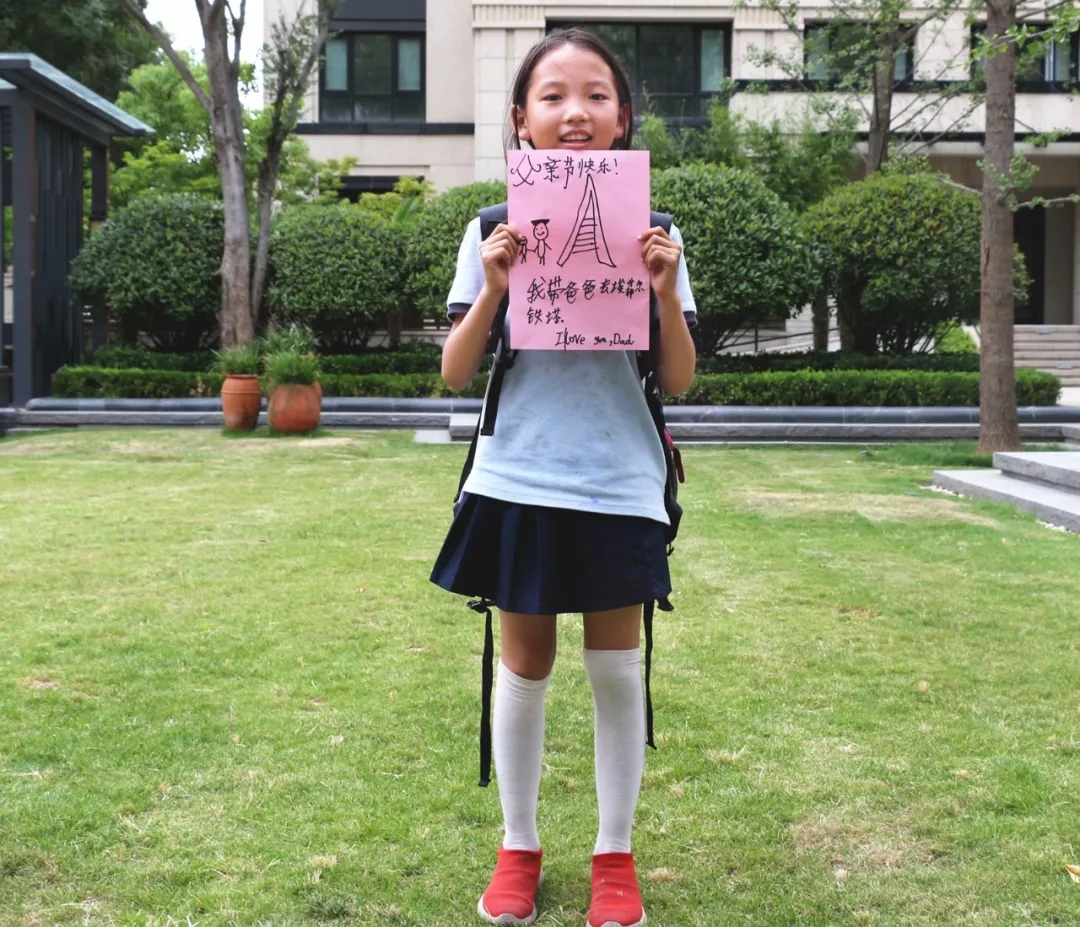 父亲节快乐!
我带爸爸去埃菲尔
铁塔.
I love you, Dad